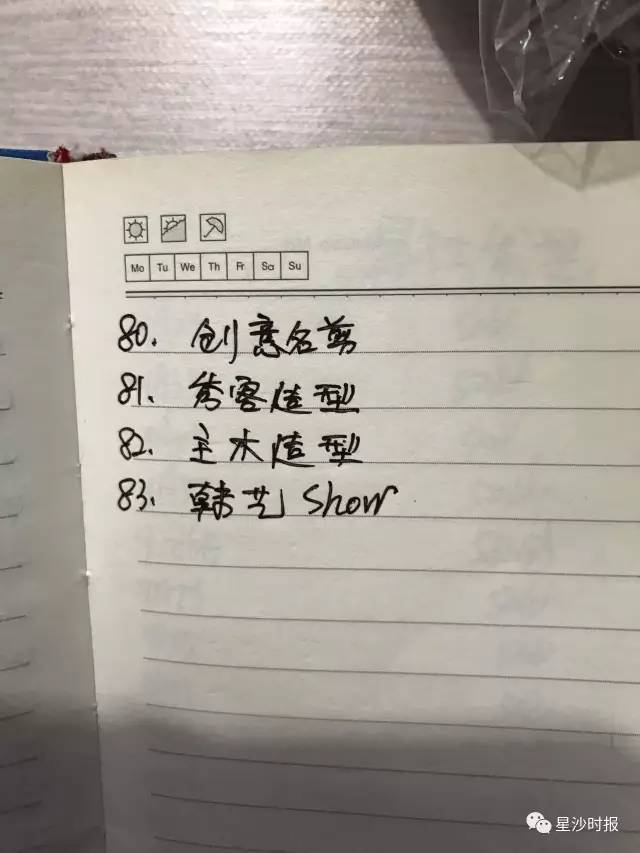 Mo Tu We Th Fr Sa Su
80. 创意名剪
81. 秀客造型
82. 主木造型
83. 韩艺Show
星沙时报